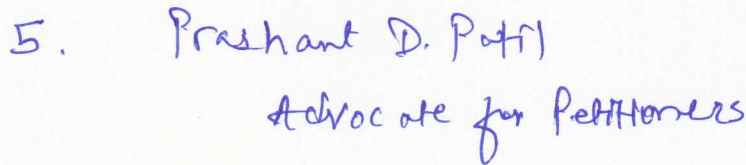 5. Prashant D. Patil
Advocate for Petitioners